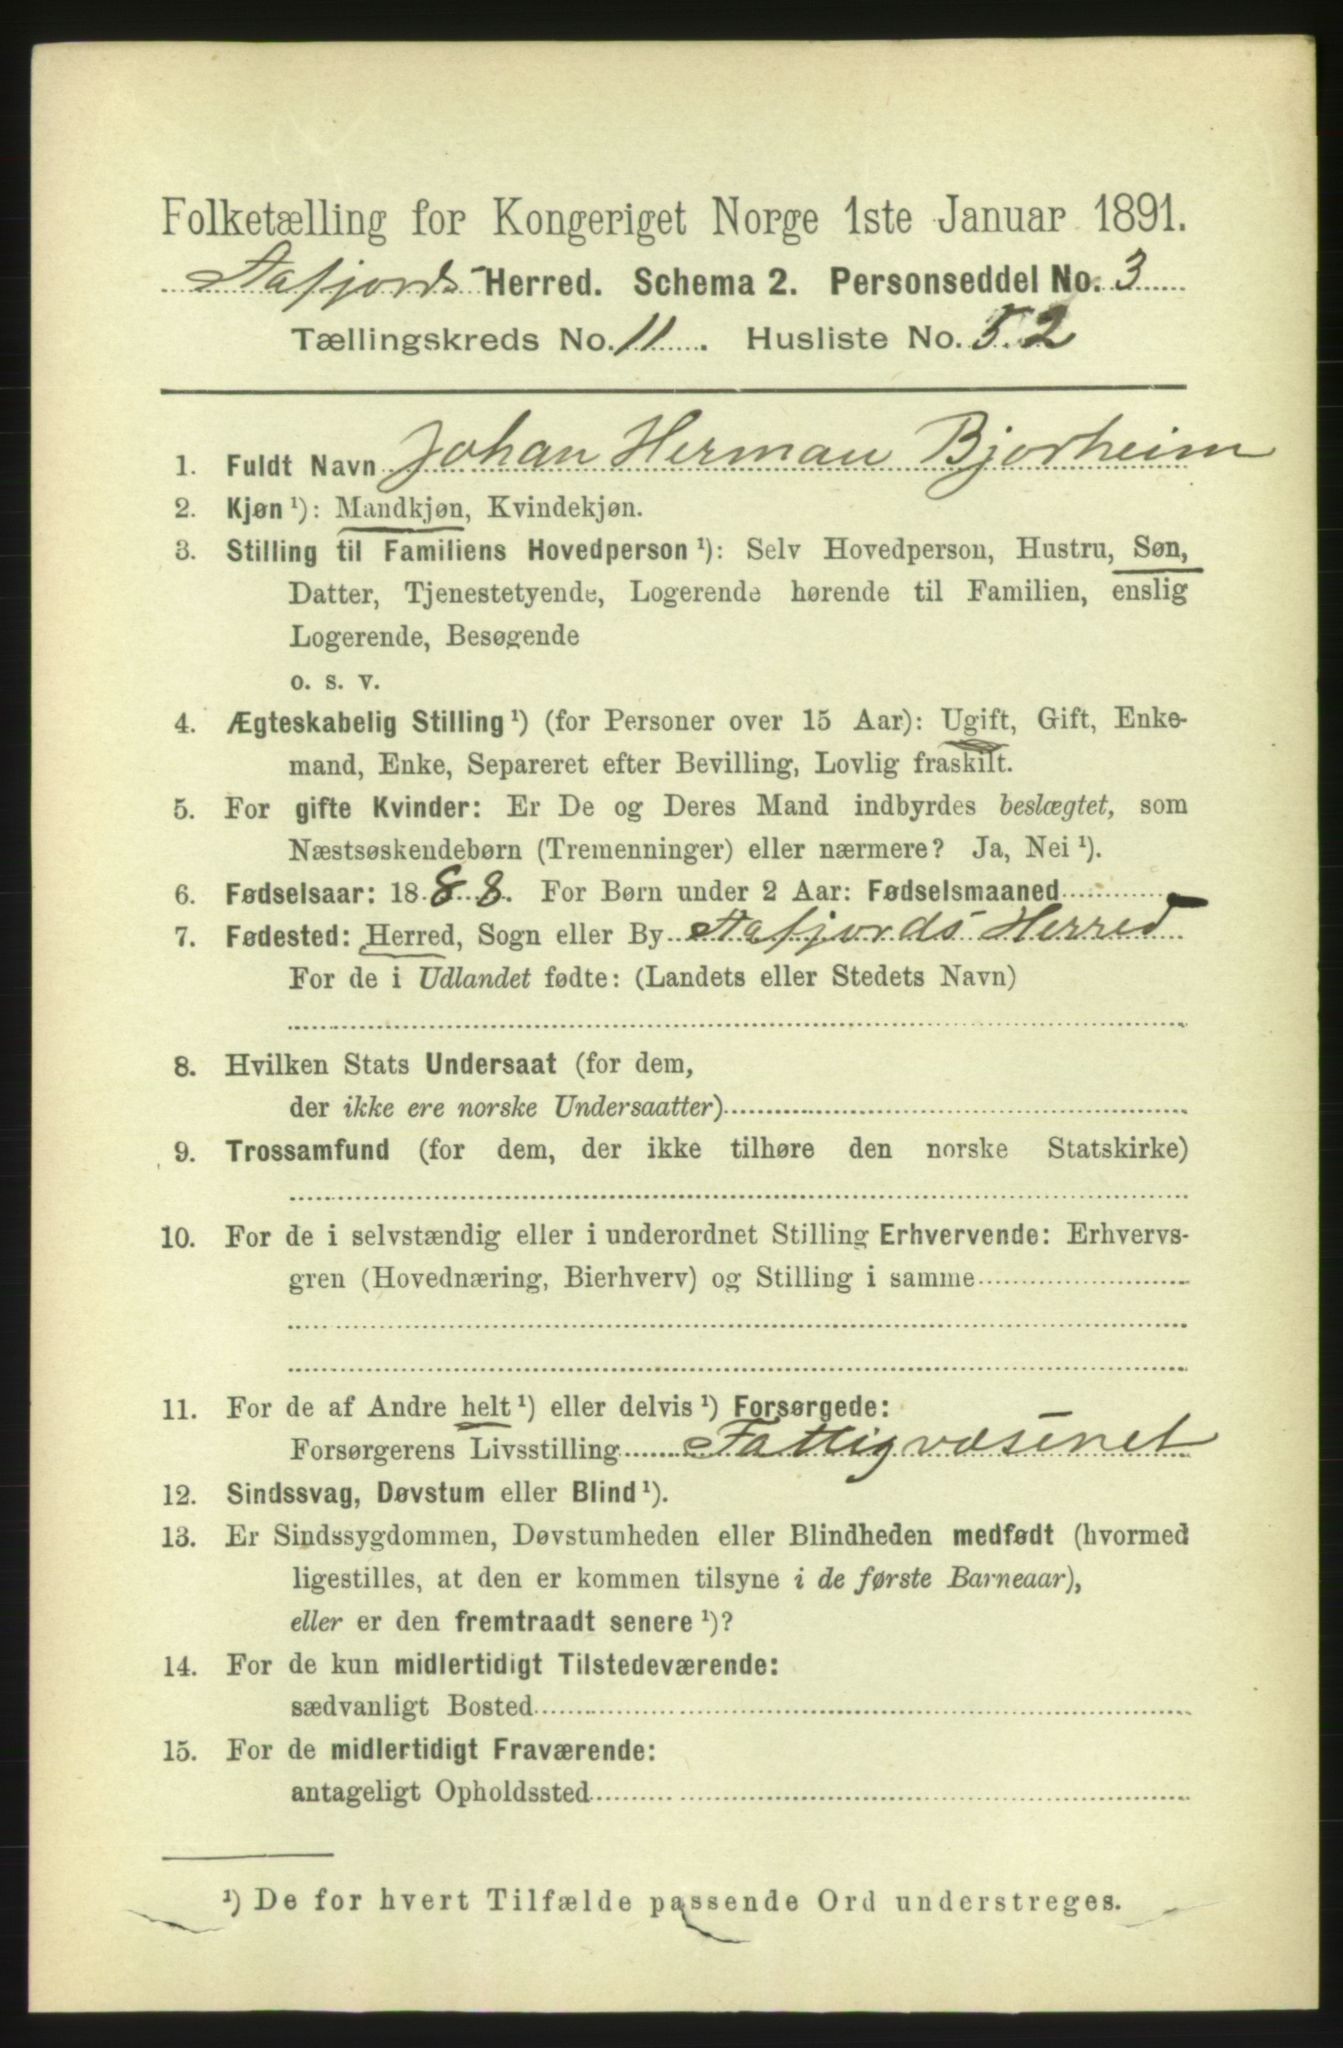 Folketælling for Kongeriget Norge 1ste Januar 1891.
Aafjords Herred. Schema 2. Personseddel No. 3
Tællingskreds No. 11. Husliste No. 52
1. Fuldt Navn Johan Herman Bjorheim
2. Kjøn ¹): Mandkjøn, Kvindekjøn.
3. Stilling til Familiens Hovedperson ¹): Selv Hovedperson, Hustru, Søn,
Datter, Tjenestetyende, Logerende hørende til Familien, enslig
Logerende, Besøgende
o. s. v.
4. Ægteskabelig Stilling ¹) (for Personer over 15 Aar): Ugift, Gift, Enke-
mand, Enke, Separeret efter Bevilling, Lovlig fraskilt.
5. For gifte Kvinder: Er De og Deres Mand indbyrdes beslægtet, som
Næstsøskendebørn (Tremenninger) eller nærmere? Ja, Nei ¹).
6. Fødselsaar: 1888. For Børn under 2 Aar: Fødselsmaaned
7. Fødested: Herred, Sogn eller By Aafjords Herred
For de i Udlandet fødte: (Landets eller Stedets Navn)
8. Hvilken Stats Undersaat (for dem,
der ikke ere norske Undersaatter)
9. Trossamfund (for dem, der ikke tilhøre den norske Statskirke)
10. For de i selvstændig eller i underordnet Stilling Erhvervende: Erhvervs-
gren (Hovednæring, Bierhverv) og Stilling i samme
11. For de af Andre helt ¹) eller delvis ¹) Forsørgede:
Forsørgerens Livsstilling Fattigvæsenet
12. Sindssvag, Døvstum eller Blind ¹).
13. Er Sindssygdommen, Døvstumheden eller Blindheden medfødt (hvormed
ligestilles, at den er kommen tilsyne i de første Barneaar),
eller er den fremtraadt senere ¹)?
14. For de kun midlertidigt Tilstedeværende:
sædvanligt Bosted
15. For de midlertidigt Fraværende:
antageligt Opholdssted
¹) De for hvert Tilfælde passende Ord understreges.